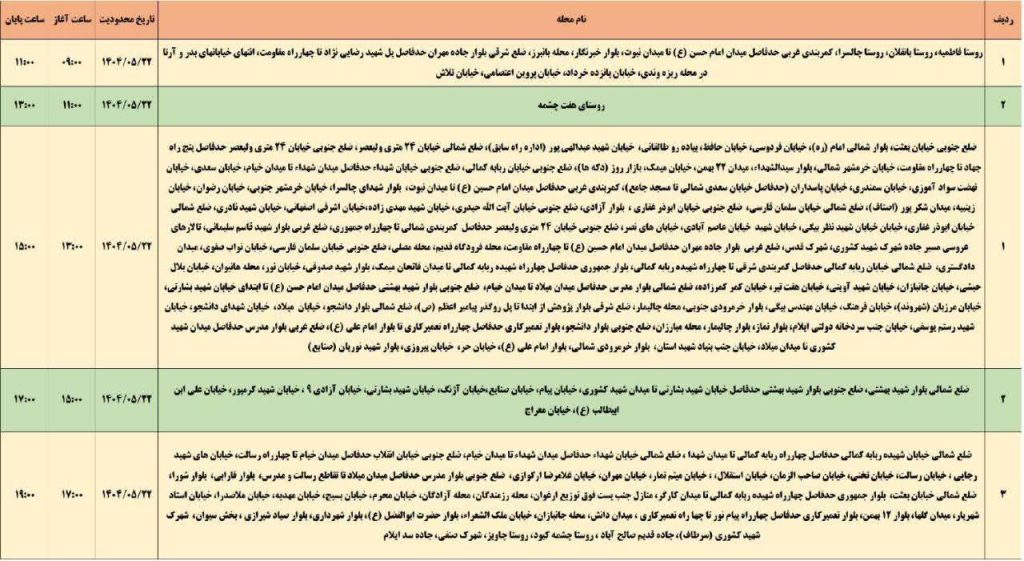 ردیف نام محله تاریخ محدودیت ساعت آغاز ساعت پایان
روستا فاطمیه، روستا بانقلان، روستا چالسرا، کمربندی غربی حدفاصل میدان امام حسن (ع) تا میدان نبوت، بلوار خبرنگار، محله بانبرز، ضلع شرقی بلوار جاده مهران حدفاصل پل شهید رضایی نژاد تا چهارراه مقاومت، انتهای خیابانهای بدر و آرتا
۱ در محله ریزه وندی، خیابان پانزده خرداد، خیابان پروین اعتصامی، خیابان تلاش ۱۴۰۴/۰۵/۲۲ ۰۹:۰۰ ۱۱:۰۰
۲ روستای هفت چشمه ۱۴۰۴/۰۵/۲۲ ۱۱:۰۰ ۱۳:۰۰
ضلع جنوبی خیابان بعثت، بلوار شمالی امام (ره)، خیابان فردوسی، خیابان حافظ، پیاده رو طالقانی، خیابان شهید عبدالهی پور (اداره راه سابق)، ضلع شمالی خیابان ۲۴ متری ولیعصر، ضلع جنوبی خیابان ۲۴ متری ولیعصر حدفاصل پنج راه
جهاد تا چهارراه مقاومت، خیابان خرمشهر شمالی، بلوار سیدالشهداء، میدان ۲۲ بهمن، خیابان میمک، بازار روز (دکه ها)، ضلع جنوبی خیابان ریابه کمالی، ضلع جنوبی خیابان شهداء حدفاصل میدان شهداء تا میدان خیام، خیابان سعدی، خیابان
نهضت سواد آموزی، خیابان سمندری، خیابان پاسداران (حدفاصل خیابان سعدی شمالی تا مسجد جامع)، کمربندی غربی حدفاصل میدان امام حسین (ع) تا میدان نبوت، بلوار شهدای چالسرا، خیابان خرمشهر جنوبی، خیابان رضوان، خیابان
زینبیه، میدان شکر پور (اصناف)، ضلع شمالی خیابان سلمان فارسی، ضلع جنوبی خیابان ابوذر غفاری ، بلوار آزادی، ضلع جنوبی خیابان آیت الله حیدری، خیابان شهید مهدی زاده،خیابان اشرفی اصفهانی، خیابان شهید نادری، ضلع شمالی
خیابان ابوذر غفاری، خیابان خیابان شهید نظر بیگی، خیابان شهید خیابان عاصم آبادی، خیابان های نصر، ضلع جنوبی خیابان ۲۴ متری ولیعصر حدفاصل کمربندی شمالی تا چهارراه جمهوری، ضلع غربی بلوار شهید قاسم سلیمانی، تالارهای
۱ عروسی مسیر جاده شهرک شهید کشوری، شهرک قدس، ضلع غربی بلوار جاده مهران حدفاصل میدان امام حسین (ع) تا چهارراه مقاومت، محله فرودگاه قدیم، محله مصلی، ضلع جنوبی خیابان سلمان فارسی، خیابان نواب صفوی، میدان ۱۴۰۴/۰۵/۲۲ ۱۳:۰۰ ۱۵:۰۰
دادگستری، ضلع شمالی خیابان ریابه کمالی حدفاصل کمربندی شرقی تا چهارراه شهیده ریابه کمالی، بلوار جمهوری حدفاصل چهارراه شهیده ریابه کمالی تا میدان فاتحان میمک، بلوار شهید صدوقی، خیابان نور، محله هانیوان، خیابان بلال
حبشی، خیابان جانبازان، خیابان شهید آوینی، خیابان هفت تیر، خیابان کمر کمرزاده، ضلع شمالی بلوار مدرس حدفاصل میدان میلاد تا میدان خیام، ضلع جنوبی بلوار شهید بهشتی حدفاصل میدان امام حسن (ع) تا ابتدای خیابان شهید بشارتی،
خیابان مرزبان (شهروند)، خیابان فرهنگ، خیابان مهندس بیگی، بلوار خرمرودی جنوبی، محله چالیمار، ضلع شرقی بلوار پژوهش از ابتدا تا پل روگذر پیامبر اعظم (ص)، ضلع شمالی بلوار دانشجو، خیابان میلاد، خیابان شهدای دانشجو، خیابان
شهید رستم یوسفی، خیابان جنب سردخانه دولتی ایلام، بلوار نماز، بلوار چالیمار، محله مبارزان، ضلع جنوبی بلوار دانشجو، بلوار تعمیرکاری حدفاصل چهارراه تعمیرکاری تا بلوار امام علی (ع)، ضلع غربی بلوار مدرس حدفاصل میدان شهید
کشوری تا میدان میلاد، خیابان جنب بنیاد شهید استان، بلوار خرمرودی شمالی، بلوار امام علی (ع)، خیابان حر، خیابان پیروزی، بلوار شهید نوریان (صنایع)
ضلع شمالی بلوار شهید بهشتی، ضلع جنوبی بلوار شهید بهشتی حدفاصل خیابان شهید بشارتی تا میدان شهید کشوری، خیابان پیام، خیابان صنایع،خیابان آژنگ، خیابان شهید بشارتی، خیابان آزادی ۹ ، خیابان شهید کرمپور، خیابان علی ابن
۲ ابیطالب (ع)، خیابان معراج ۱۴۰۴/۰۵/۲۲ ۱۵:۰۰ ۱۷:۰۰
ضلع شمالی خیابان شهیده ریابه کمالی حدفاصل چهارراه ریابه کمالی تا میدان شهدا ، ضلع شمالی خیابان شهداء حدفاصل میدان شهداء تا میدان خیام، ضلع جنوبی خیابان انقلاب حدفاصل میدان خیام تا چهارراه رسالت، خیابان های شهید
رجایی ، خیابان رسالت، خیابان تختی، خیابان صاحب الزمان، خیابان استقلال، ، خیابان میثم تمار، خیابان مهران، خیابان غلامرضا ارکوازی، ضلع جنوبی بلوار مدرس حدفاصل میدان میلاد تا تقاطع رسالت و مدرس، بلوار فارابی، بلوار شورا،
۳ ضلع شمالی خیابان بعثت، بلوار جمهوری حدفاصل چهارراه شهیده ریابه کمالی تا میدان کارگر، منازل جنب پست فوق توزیع ارغوان، محله رزمندگان، محله آزادگان، خیابان محرم، خیابان بسیج، خیابان مهدیه، خیابان ملاصدرا، خیابان استاد ۱۴۰۴/۰۵/۲۲ ۱۷:۰۰ ۱۹:۰۰
شهریار، میدان گلها، بلوار ۱۲ بهمن، بلوار تعمیرکاری حدفاصل چهارراه پیام نور تا چها راه تعمیرکاری ، میدان دانش، محله جانبازان، خیابان ملک الشعراء، بلوار حضرت ابوالفضل (ع)، بلوار شهرداری، بلوار صیاد شیرازی ، بخش سیوان، شهرک
شهید کشوری (سرطاف)، جاده قدیم صالح آباد ، روستا چشمه کبود، روستا جاویز، شهرک صنعتی، جاده سد ایلام